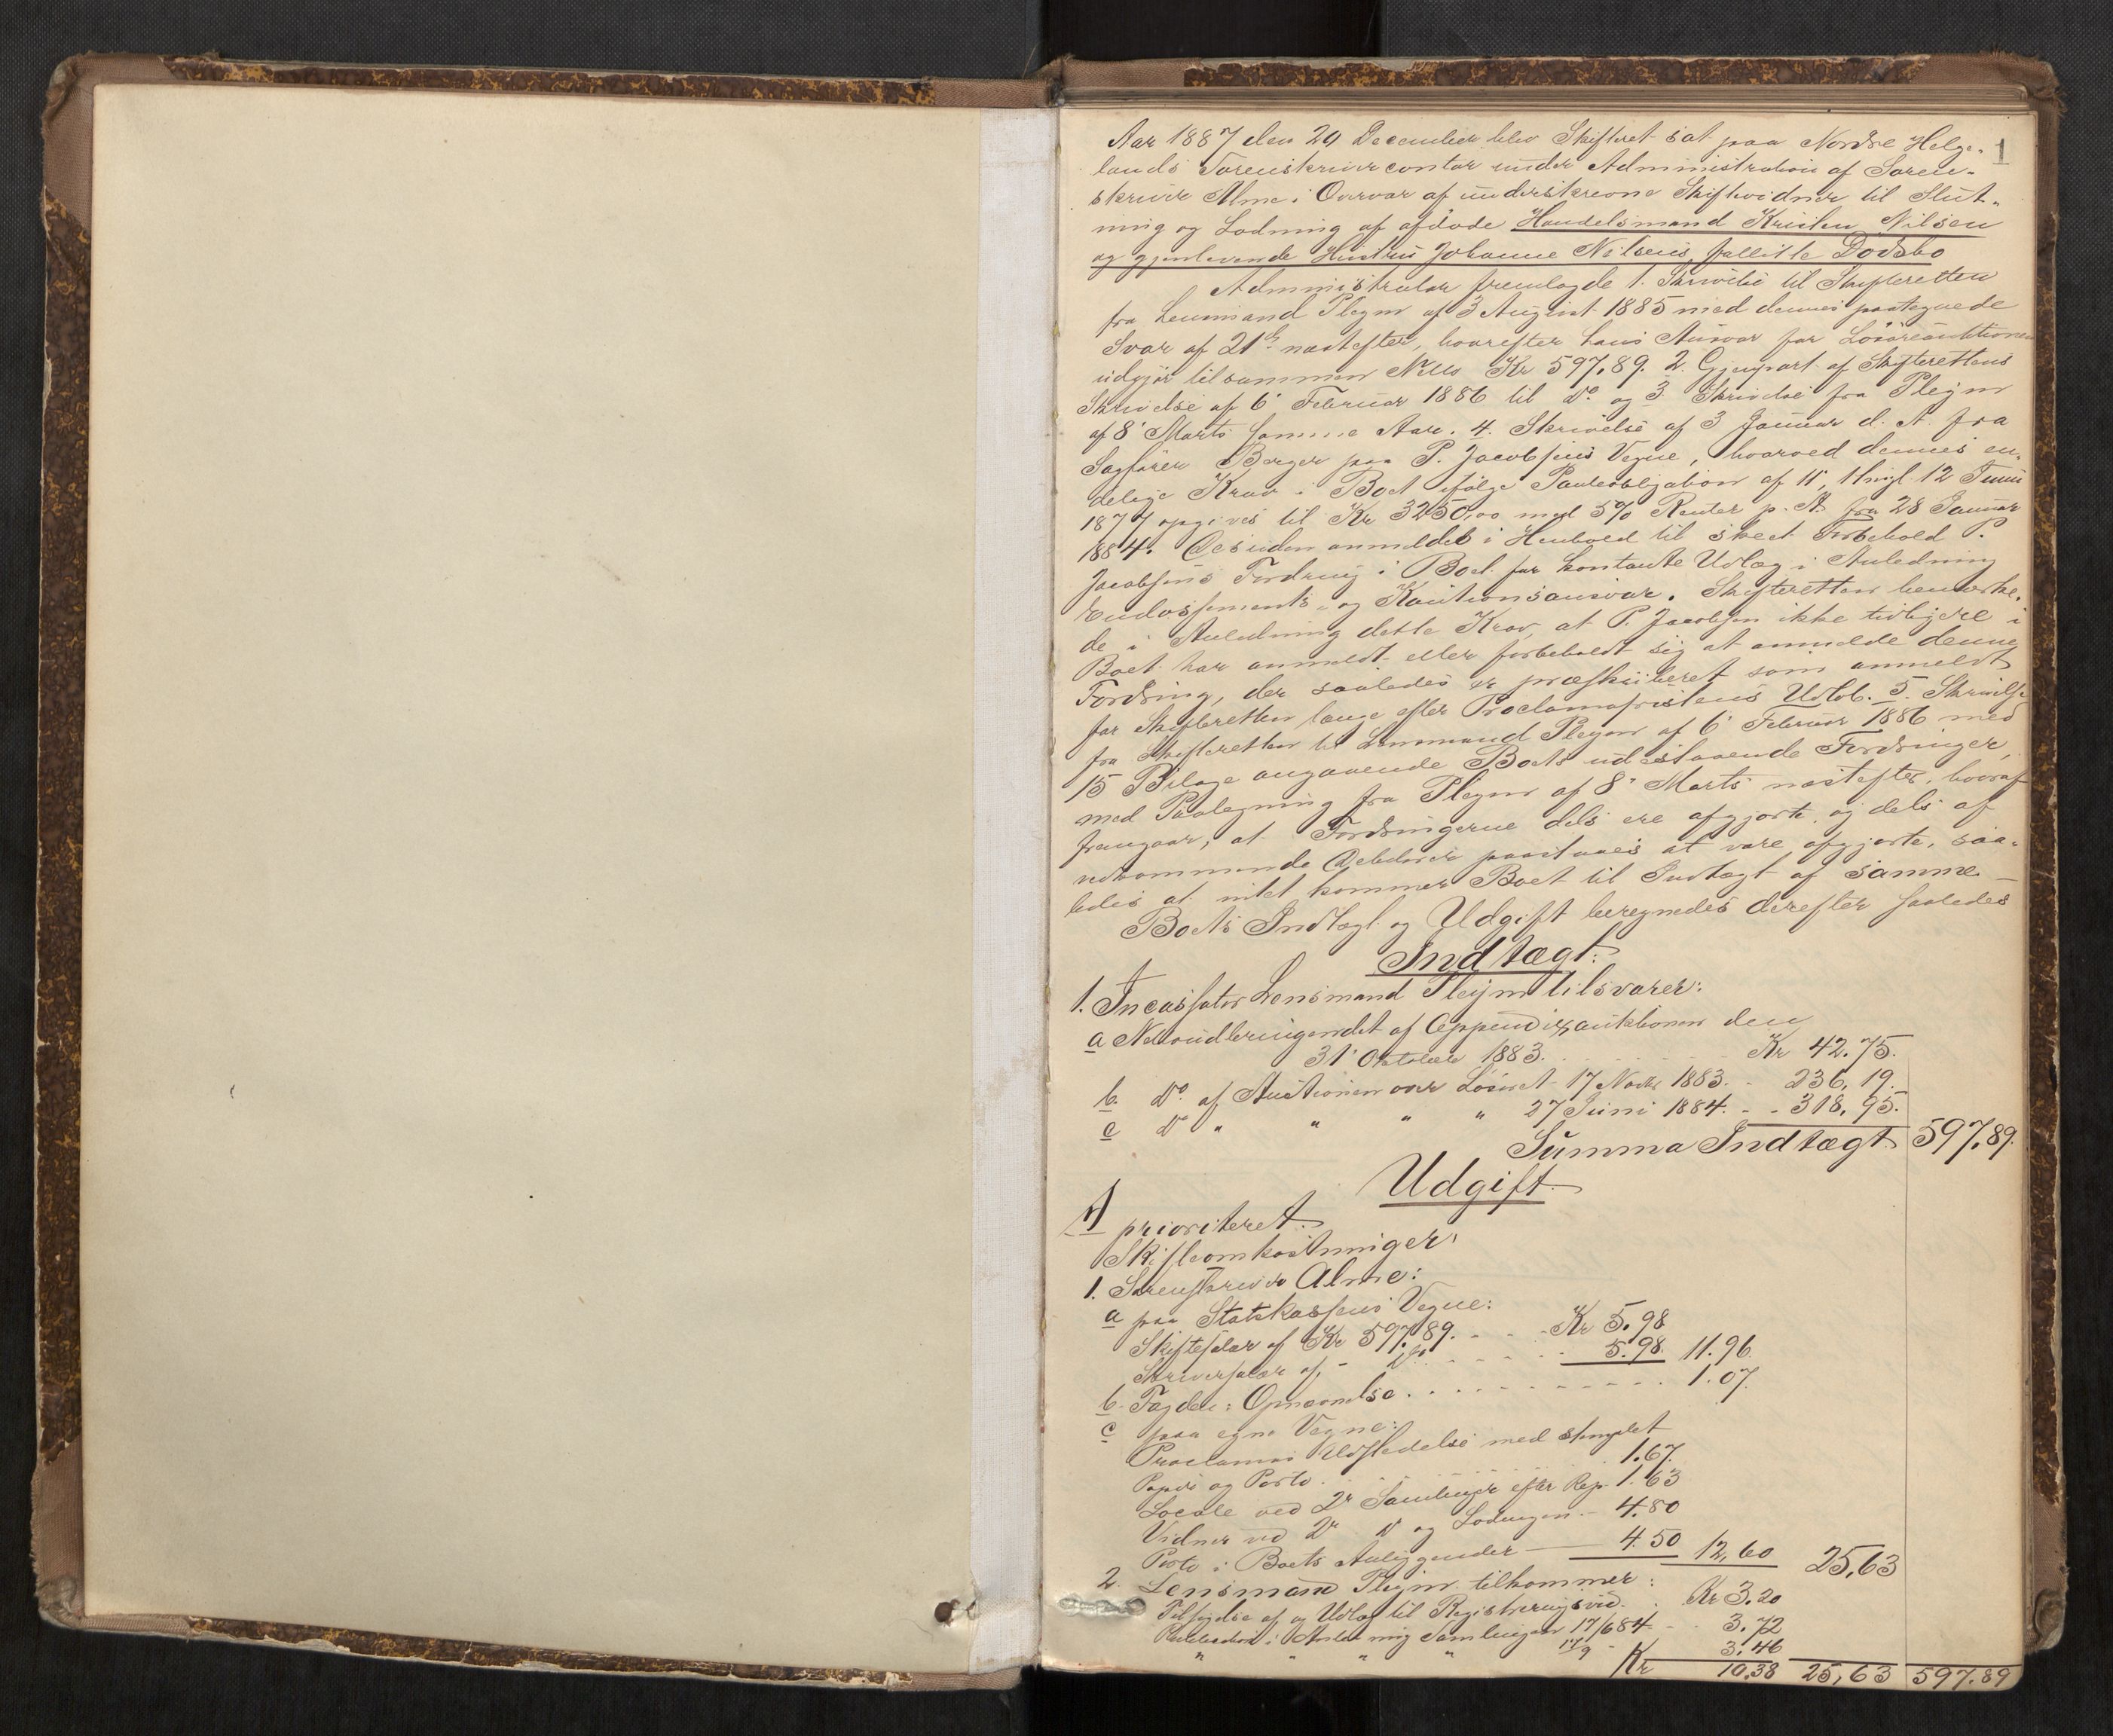 1
Aar 1887 den 29 December blev Skifteret sat paa Nordre Helge-
lands Sorenskrivercontor under Administration af Soren-
skriver Alme i Overvær af underskrevne Skiftevidner til Slut-
ning og Lodning af afdøde Handelsmand Kristen Nilsen
og gjenlevende Hustru Johanne Nilsens fallitte Dødsbo
Administrator fremlagde 1. Skrivelse til Skifteretten
fra Lensmand Pleym af 3 August 1885 med dennes paategnede
Svar af 21de næstefter, hvorefter hans Ansvar for Løsøreauktionen
udgjør tilsammen Netto Kr 597,89. 2. Gjenpart af Skifterettens
Skrivelse af 6' Februar 1886 til Do og 3. Skrivelse fra Pleym
af 8' Marts samme Aar. 4. Skrivelse af 3 Januar d. A. fra
Sagfører Berger paa P. Jacobsens Vegne, hvorved dennes en-
delige Krav i Boet ifølge Panteobligation af 11', tingl. 12 Juni
1877 opgives til Kr 3250,00 med 5% Renter p. A. fra 28 Januar
1884. Desuden anmeldes i Henhold til skeet Forbehold P.
Jacobsens Fordring i Boet for kontante Udlæg i Anledning
Endossements- og Kautionsansvar. Skifteretten bemærke-
de i Anledning dette Krav, at P. Jacobsen ikke tidligere i
Boet har anmeldt eller forbeholdt sig at anmelde denne
Fordring, der saaledes er præskriberet som anmeldt
for Skifteretten længe efter Proclamafristens Udløb. 5. Skrivelse
fra Skifteretten til Lensmand Pleym af 6' Februar 1886 med
15 Bilage angaaende Boets udestaaende Fordringer,
med Paategning fra Pleym af 8' Marts næstefter, hvoraf
fremgaar, at Fordringerne dels ere afgjorte, og dels af
vedkommende Debitorer paastaaes at være afgjorte, saa-
ledes at intet kommer Boet til Indtægt af samme –
Boets Indtægt og Udgift beregnedes derefter saaledes
Indtægt:
1. Incassator Lensmand Pleym tilsvarer:
a Nettoudbringendet af Appendixauktionen den
31' Oktober 1883. Kr 42.75.
b. Do. af Auctionen over Løsøret 17 Novbr 1883. - 236,19.
c Do " " " " 27 Juni 1884. - - 318,95.
Summa Indtægt 597,89.
Udgift.
A prioriteret.
Skifteomkostninger:
1. Sorenskriver Alme:
a paa Statskassens Vegne:
Skiftesalær af Kr 597,89. - - - Kr 5.98
Skriversalær af - Do - - - - - 5.98. 11.96
b. Fogden: Opnævnelse. 1.07.
c paa egne Vegne:
Proclamas Udstedelse med stemplet
Papir og Porto. 1.67.
Locale ved 2r Samlinger efter Rep. 1.63
Vidner ved 2r Do og Lodningen - 4.80
Porto i Boets Anliggender 4.50 12,60 25,63
2. Lensmand Pleym tilkommer:
Tilsigelse af og Udlæg til Registreringsvid. Kr 3.20
Samlingen 17/6 84 - - 3.72
" " " " 17/9 - 3,46
Kr 10.38 25,63 597.89